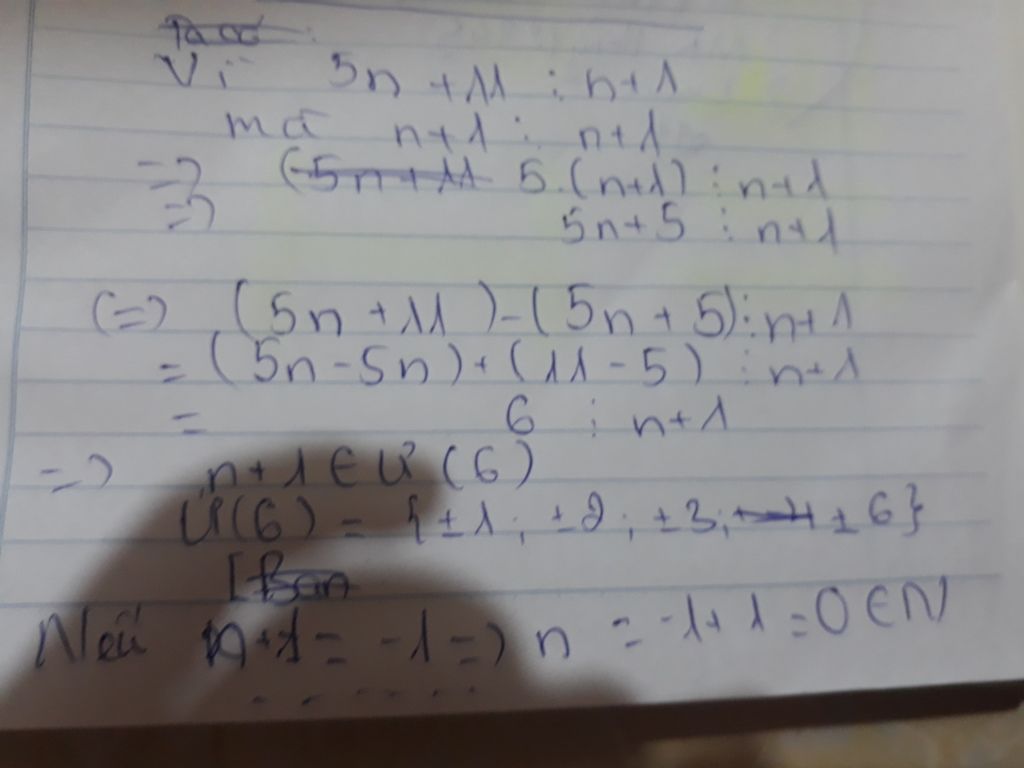 Vì 5n + 11 ⋮ n+1
mà n+1 ⋮ n+1
=> (5n+11 5.(n+1) ⋮ n+1
=> 5n+5 ⋮ n+1
(=) (5n + 11) - (5n + 5) ⋮ n+1
= (5n - 5n) + (11 - 5) ⋮ n+1
= 6 ⋮ n+1
=> n+1 ∈ Ư(6)
Ư(6) = {±1; ±2; ±3; ±4 ±6}
[Ban
Nếu n+1 = -1 => n = -1+1 = 0 ∈ N